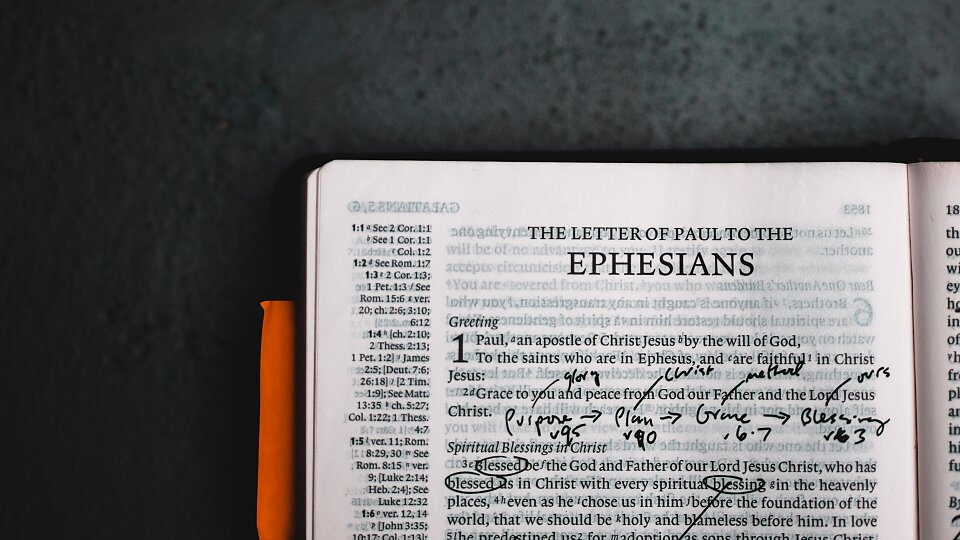 GALATIANS 5, 6
1853
THE LETTER OF PAUL TO THE
EPHESIANS
1:1 a See 2 Cor. 1:1
b See 1 Cor. 1:1
c Col. 1:2
1:2 d See Rom. 1:7
1:3 e 2 Cor. 1:3;
1 Pet. 1:3 f See
Rom. 15:6 g ver.
20; ch. 2:6; 3:10;
6:12
1:4 h [ch. 2:10;
2 Thess. 2:13;
1 Pet. 1:2] i James
2:5; [Deut. 7:6;
26:18] j [2 Tim.
1:9]; See Matt.
13:35 k ch. 5:27;
Col. 1:22; 1 Thess.
4:7
1:5 l ver. 11; Rom.
8:29, 30 m See
Rom. 8:15 n ver.
9; [Luke 2:14;
Heb. 2:4]; See
Luke 12:32
1:6 o ver. 12, 14
p [John 3:35;
10:17; Col. 1:13];
Greeting
1 Paul, a an apostle of Christ Jesus b by the will of God,
To the saints who are in Ephesus, and c are faithful 1 in Christ
Jesus:
glory Christ method ours
2 d Grace to you and peace from God our Father and the Lord Jesus
Christ.
Purpose → Plan → Grace → Blessing
v6-7
Spiritual Blessings in Christ
3 e Blessed be f the God and Father of our Lord Jesus Christ, who has
blessed us in Christ with every spiritual blessing g in the heavenly
places, 4 h even as he i chose us in him j before the foundation of the
world, that we should be k holy and blameless before him. In love
5 l he predestined us 2 for m adoption as sons through Jesus Christ